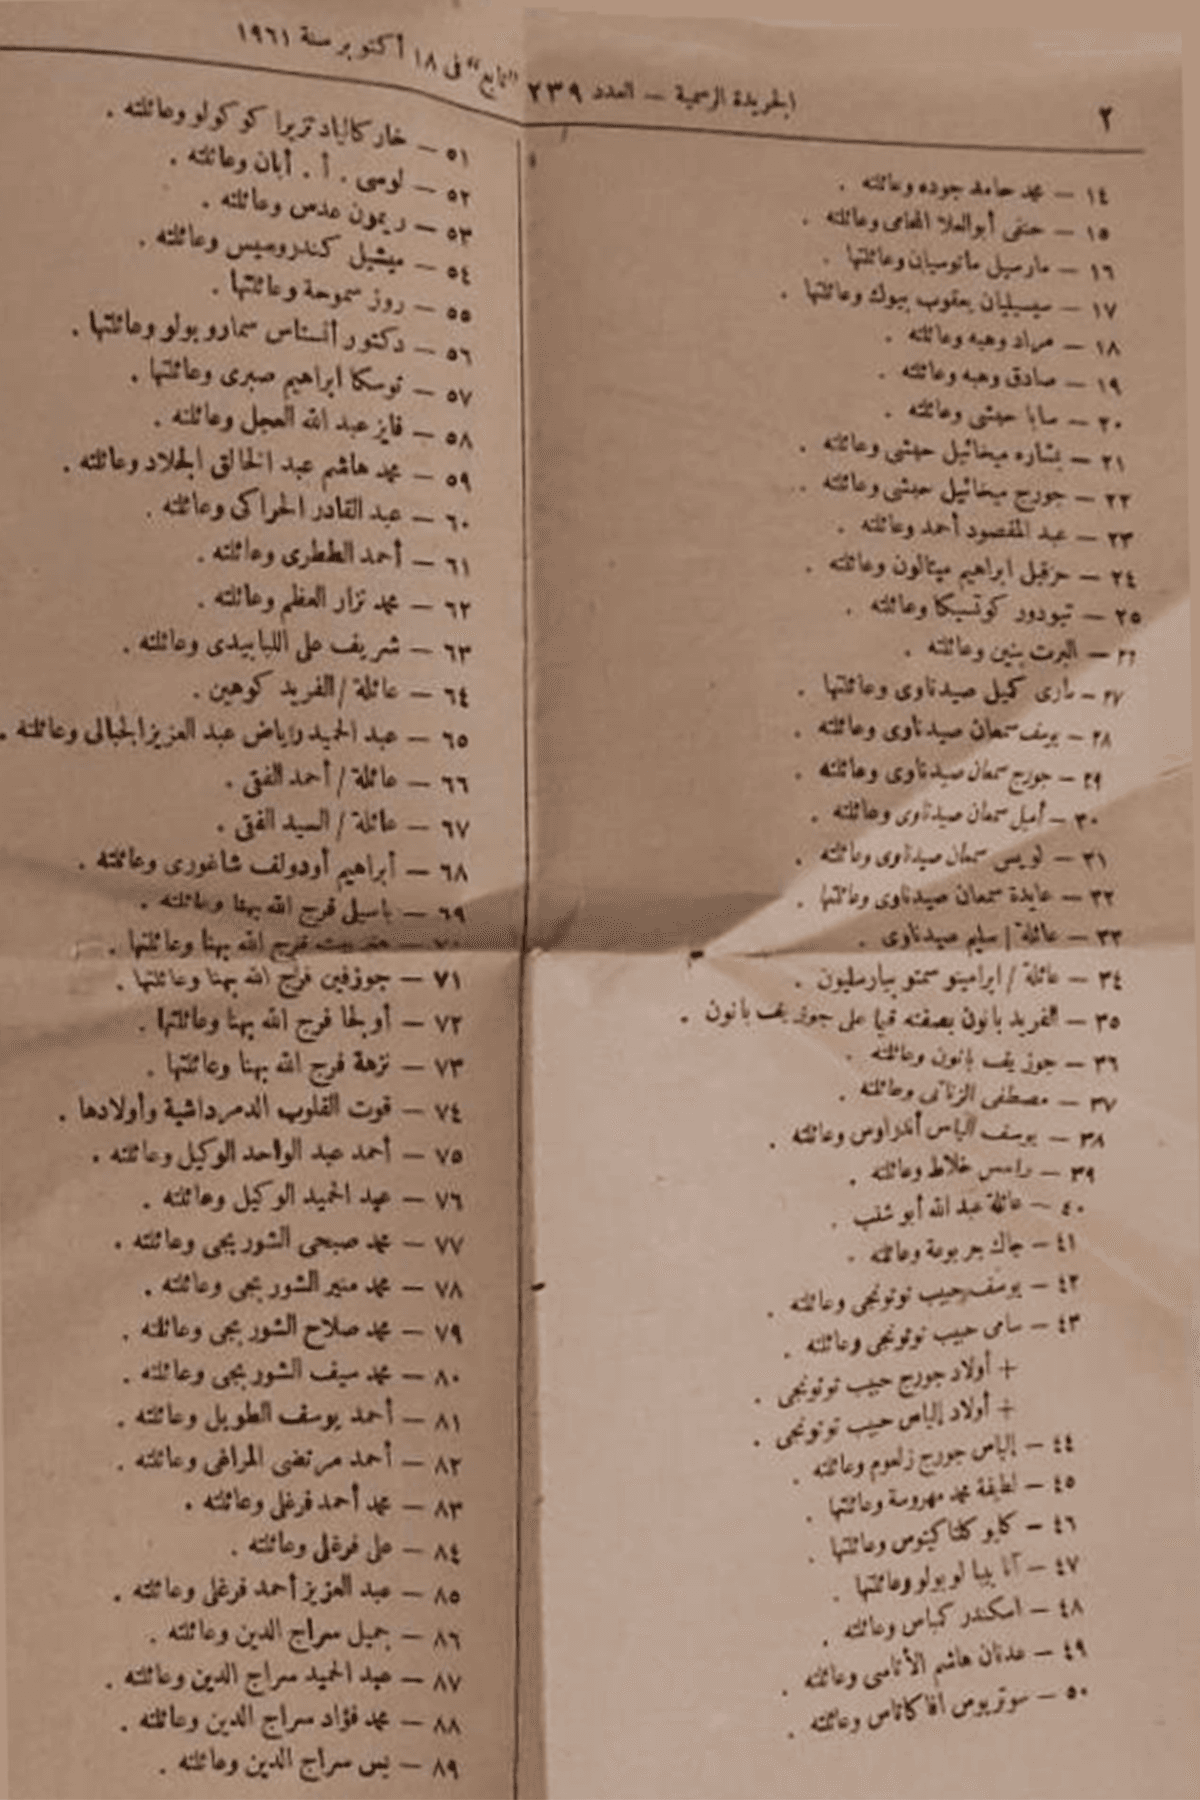 ٢
الجريدة الرسمية – العدد ٢٣٩ "تابع" فى ١٨ أكتوبر سنة ١٩٦١
١٤ – محمد حامد جوده وعائلته .
١٥ – حنفى أبو العلا المحامى وعائلته .
١٦ – مارسيل ماتوسيان وعائلتها .
١٧ – سيسيليان يعقوب بيوك وعائلتها .
١٨ – مراد وهبه وعائلته .
١٩ – صادق وهبه وعائلته .
٢٠ – سابا حبشى وعائلته .
٢١ – بشاره ميخائيل حبشى وعائلته .
٢٢ – جورج ميخائيل حبشى وعائلته .
٢٣ – عبد المقصود أحمد وعائلته .
٢٤ – حزقيل ابراهيم ميتالون وعائلته .
٢٥ – تيودور كوتسيكا وعائلته .
٢٦ – البرت بنين وعائلته .
٢٧ – مارى كميل صيدناوى وعائلتها .
٢٨ – يوسف سمعان صيدناوى وعائلته .
٢٩ – جورج سمعان صيدناوى وعائلته .
٣٠ – أميل سمعان صيدناوى وعائلته .
٣١ – لويس سمعان صيدناوى وعائلته .
٣٢ – عايدة سمعان صيدناوى وعائلتها .
٣٣ – عائلة / سليم صيدناوى .
٣٤ – عائلة / ابرامينو سمتو بيارسليون .
٣٥ – الفريد بانون بصفته قيما على جوزيف بانون .
٣٦ – جوزيف بانون وعائلته .
٣٧ – مصطفى الزناتى وعائلته .
٣٨ – يوسف الياس أندراوس وعائلته .
٣٩ – رامس خلاط وعائلته .
٤٠ – عائلة عبد الله أبو شنب .
٤١ – جاك جربوعة وعائلته .
٤٢ – يوسف حبيب توتونجى وعائلته .
٤٣ – سامى حبيب توتونجى وعائلته .
+ أولاد جورج حبيب توتونجى .
+ أولاد إلياس حبيب توتونجى .
٤٤ – إلياس جورج زلعوم وعائلته .
٤٥ – لطيفة محمد مهروسة وعائلتها .
٤٦ – كليو كلتاكيتوس وعائلتها .
٤٧ – لوبولو وعائلتها .
٤٨ – اسكندر كباس وعائلته .
٤٩ – عدنان هاشم الأتاسى وعائلته .
٥٠ – سوتريوس افاكاتاس وعائلته .
٥١ – تزيرا كوكولو وعائلته .
٥٢ – لوسى . أ . أبان وعائلته .
٥٣ – ريمون عدس وعائلته .
٥٤ – ميشيل كندروسيس وعائلته .
٥٥ – روز سموحة وعائلتها .
٥٦ – دكتور أنستاس سماروبولو وعائلتها .
٥٧ – توسكا ابراهيم صبرى وعائلتها .
٥٨ – فايز عبد الله العجل وعائلته .
٥٩ – محمد هاشم عبد الخالق الجلاد وعائلته .
٦٠ – عبد القادر الحراكى وعائلته .
٦١ – أحمد الططرى وعائلته .
٦٢ – محمد نزار العظم وعائلته .
٦٣ – شريف على اللبابيدى وعائلته .
٦٤ – عائلة / الفريد كوهين .
٦٥ – عبد الحميد رياض عبد العزيز الجبالى وعائلته .
٦٦ – عائلة / أحمد الفقى .
٦٧ – عائلة / السيد الفقى .
٦٨ – أبراهيم أودولف شاغورى وعائلته .
٦٩ – باسيل فرج الله بهنا وعائلته .
٧٠ – فرج الله بهنا وعائلتها .
٧١ – جوزفين فرج الله بهنا وعائلتها .
٧٢ – أوبلجا فرج الله بهنا وعائلتها .
٧٣ – نزهة فرج الله بهنا وعائلتها .
٧٤ – قوت القلوب الدمرداشية وأولادها .
٧٥ – أحمد عبد الواحد الوكيل وعائلته .
٧٦ – عبد الحميد الوكيل وعائلته .
٧٧ – محمد صبحى الشوربجى وعائلته .
٧٨ – محمد منير الشوربجى وعائلته .
٧٩ – محمد صلاح الشوربجى وعائلته .
٨٠ – محمد سيف الشوربجى وعائلته .
٨١ – أحمد يوسف الطويل وعائلته .
٨٢ – أحمد مرتضى المراغى وعائلته .
٨٣ – محمد أحمد فرغلى وعائلته .
٨٤ – على فرغلى وعائلته .
٨٥ – عبد العزيز أحمد فرغلى وعائلته .
٨٦ – جميل سراج الدين وعائلته .
٨٧ – عبد الحميد سراج الدين وعائلته .
٨٨ – محمد فؤاد سراج الدين وعائلته .
٨٩ – يس سراج الدين وعائلته .